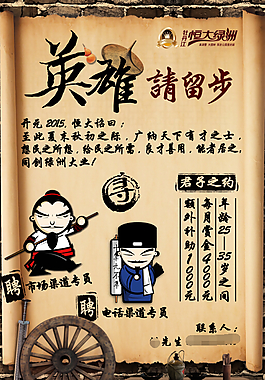 恒大绿洲
英雄 請留步
开元2015，恒大诏曰：
至此夏末秋初之际，广纳天下有才之士，
想民之所想，给民之所需，良才善用，能者居之，
同创绿洲大业！
寻
君子之约
年龄25—35岁之间
每月赏金4000元
额外补助1000元
聘
市场渠道专员
聘
电话渠道专员
联系人：
先生